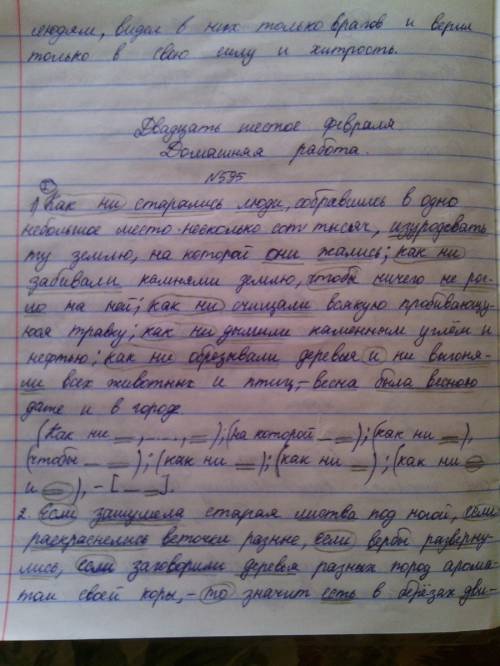 людям, видел в них только врагов и верил
только в свою силу и хитрость.
Двадцать шестое февраля
Домашняя работа.
№595
1) Как ни старались люди, собравшись в одно
небольшое место несколько сот тысяч, изуродовать
ту землю, на которой они жались; как ни
забивали камнями землю, чтобы ничего не рос-
ло на ней; как ни счищали всякую пробивающу-
юся травку; как ни дымили каменным углём и
нефтью; как ни обрезывали деревья и ни выгоня-
ли всех животных и птиц, – весна была весною
даже и в городе.
(Как ни =, ..., =); (на которой _ =); (как ни =),
(чтобы _ =); (как ни =); (как ни =); (как ни =
и =), – [_ =].
2. Если зашумела старая листва под ногой, если
раскраснелись веточки разные, если вербы разверну-
лись, если заговорили деревья разных пород арома-
том своей коры, – то значит есть в берёзах дви-